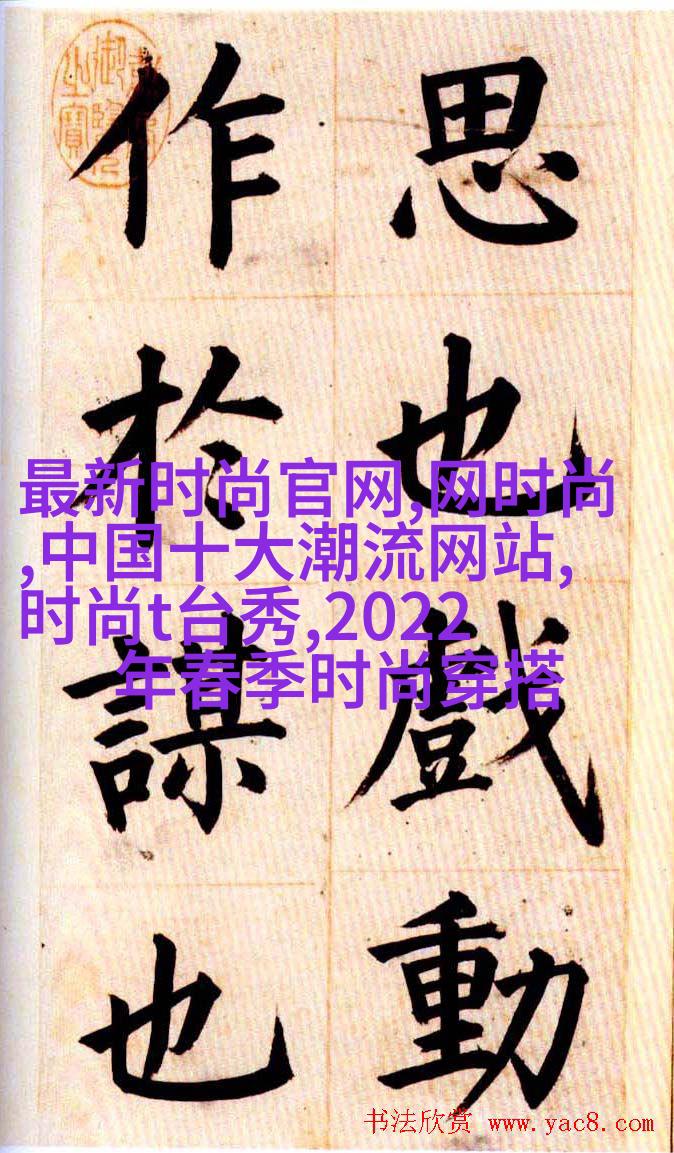 思也戲動
作於謀也
最新时尚官网,网时尚
,中国十大潮流网站,
时尚t台秀,2022
年春季时尚穿搭
书法欣赏 www.yac8.com